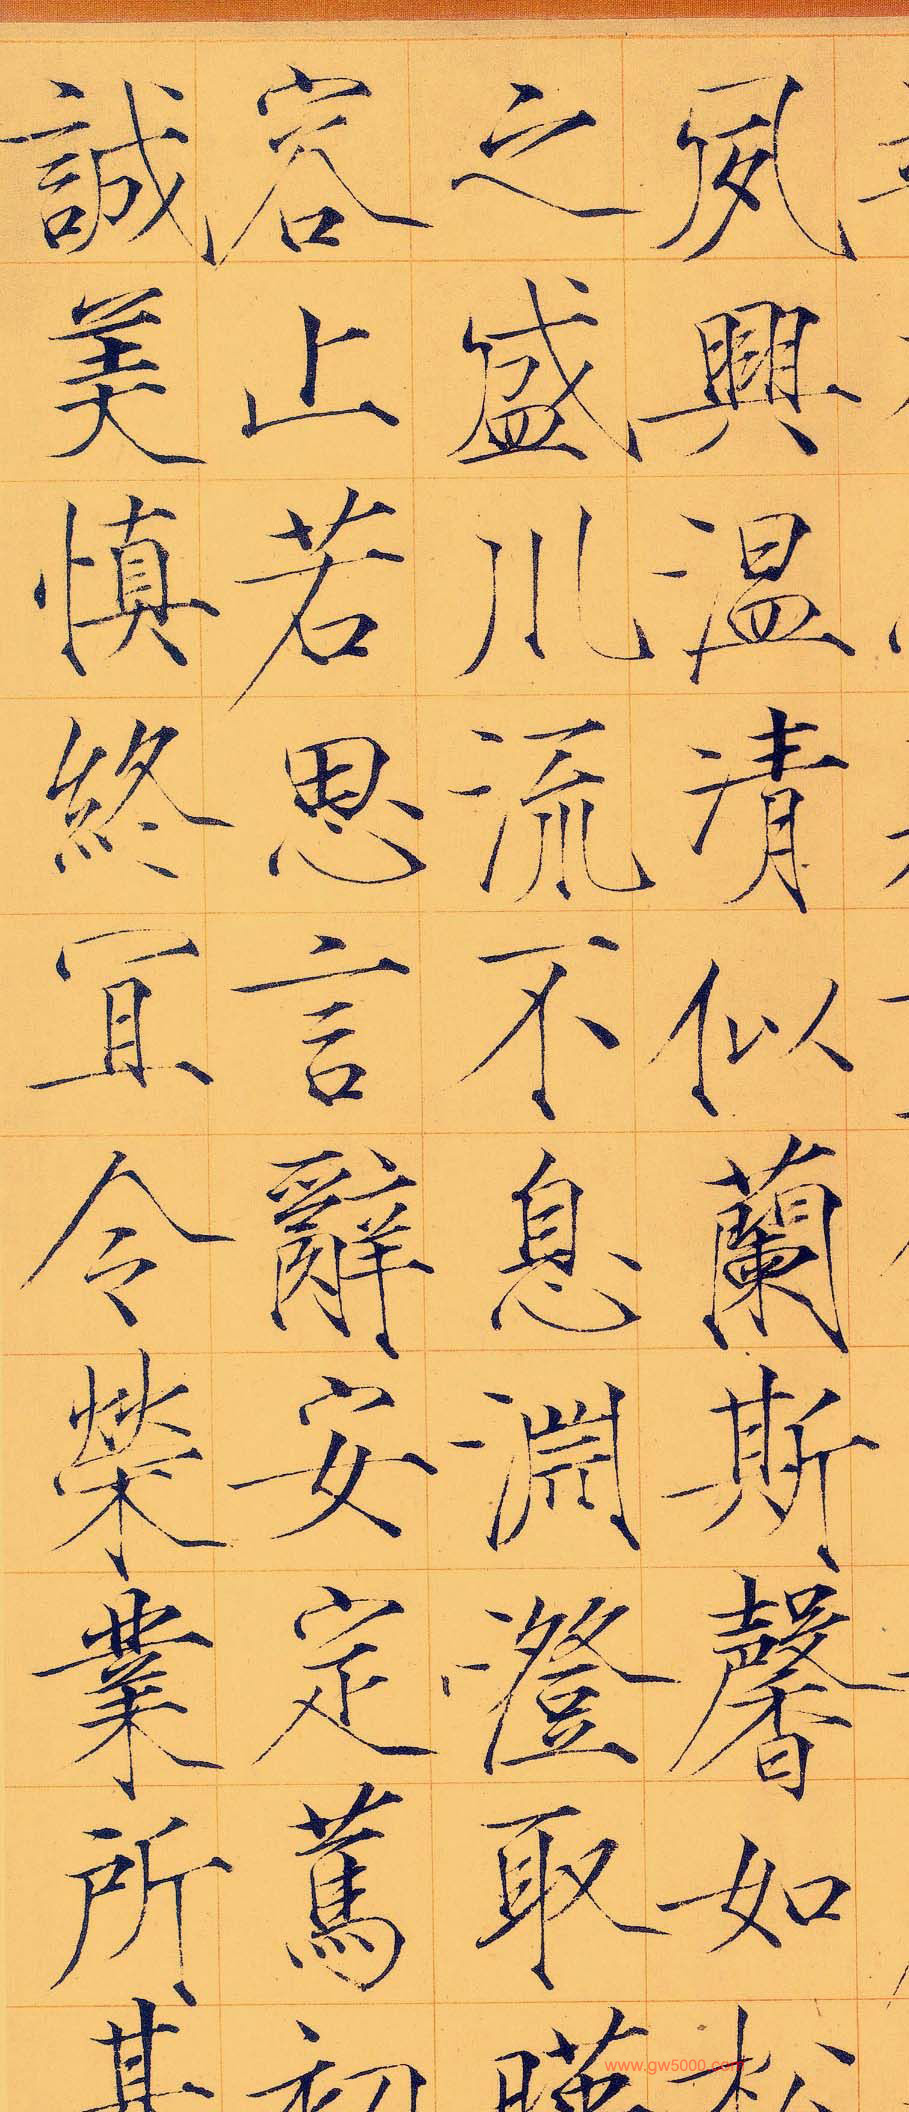 夙興温清似蘭斯馨如松
之盛川流不息淵澄取暎
容止若思言辭安定篤初
誠美慎終宜令榮業所基
www.gw5000.com